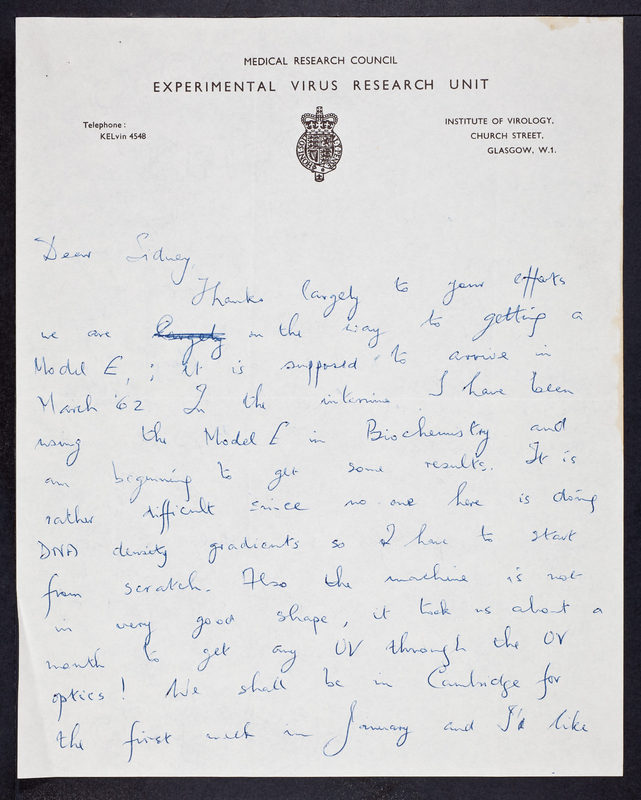 MEDICAL RESEARCH COUNCIL
EXPERIMENTAL VIRUS RESEARCH UNIT
Telephone:
KELvin 4548
INSTITUTE OF VIROLOGY,
CHURCH STREET,
GLASGOW, W.1.
Dear Sidney,
Thanks largely to your efforts
we are largely on the way to getting a
Model E, ; it is supposed to arrive in
March '62 In the interime I have been
using the Model E in Biochemistry and
am beginning to get some results. It is
rather difficult since no one here is doing
DNA density gradients so I have to start
from scratch. Also the machine is not
in very good shape, it took us about a
month to get any UV through the UV
optics! We shall be in Cambridge for
the first week in January and I'd like